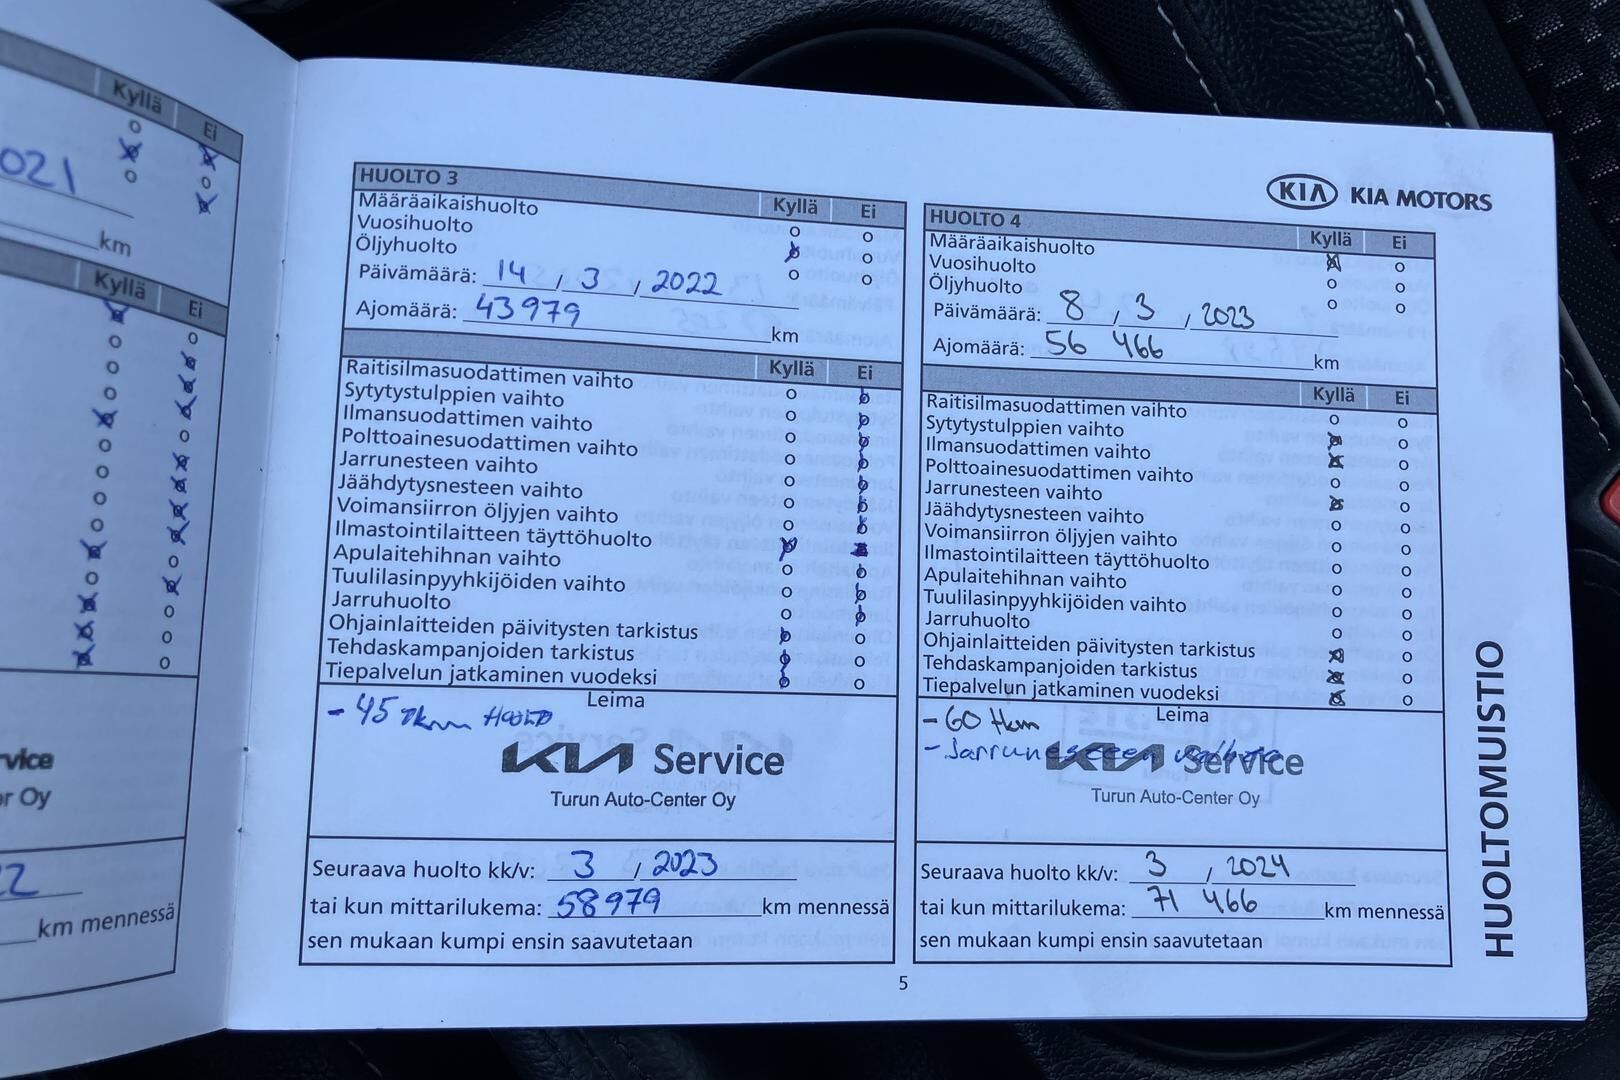 Kyllä
Ei
021
km
Kyllä
Ei
rvice
er Oy
22
km mennessä
KIA KIA MOTORS
HUOLTO 3
Kyllä Ei
Määräaikaishuolto
Vuosihuolto
Öljyhuolto
Päivämäärä: 14 / 3 / 2022
Ajomäärä: 43979 km
Kyllä Ei
Raitisilmasuodattimen vaihto
Sytytystulppien vaihto
Ilmansuodattimen vaihto
Polttoainesuodattimen vaihto
Jarrunesteen vaihto
Jäähdytysnesteen vaihto
Voimansiirron öljyjen vaihto
Ilmastointilaitteen täyttöhuolto
Apulaitehihnan vaihto
Tuulilasinpyyhkijöiden vaihto
Jarruhuolto
Ohjainlaitteiden päivitysten tarkistus
Tehdaskampanjoiden tarkistus
Tiepalvelun jatkaminen vuodeksi
Leima
- 45 tkm Huolto
KIA Service
Turun Auto-Center Oy
Seuraava huolto kk/v: 3 / 2023
tai kun mittarilukema: 58979 km mennessä
sen mukaan kumpi ensin saavutetaan
HUOLTO 4
Kyllä Ei
Määräaikaishuolto
Vuosihuolto
Öljyhuolto
Päivämäärä: 8 / 3 / 2023
Ajomäärä: 56 466 km
Kyllä Ei
Raitisilmasuodattimen vaihto
Sytytystulppien vaihto
Ilmansuodattimen vaihto
Polttoainesuodattimen vaihto
Jarrunesteen vaihto
Jäähdytysnesteen vaihto
Voimansiirron öljyjen vaihto
Ilmastointilaitteen täyttöhuolto
Apulaitehihnan vaihto
Tuulilasinpyyhkijöiden vaihto
Jarruhuolto
Ohjainlaitteiden päivitysten tarkistus
Tehdaskampanjoiden tarkistus
Tiepalvelun jatkaminen vuodeksi
Leima
- 60 tkm
- Jarrunesteen vaihto
KIA Service
Turun Auto-Center Oy
Seuraava huolto kk/v: 3 / 2024
tai kun mittarilukema: 71 466 km mennessä
sen mukaan kumpi ensin saavutetaan
HUOLTOMUISTIO
5